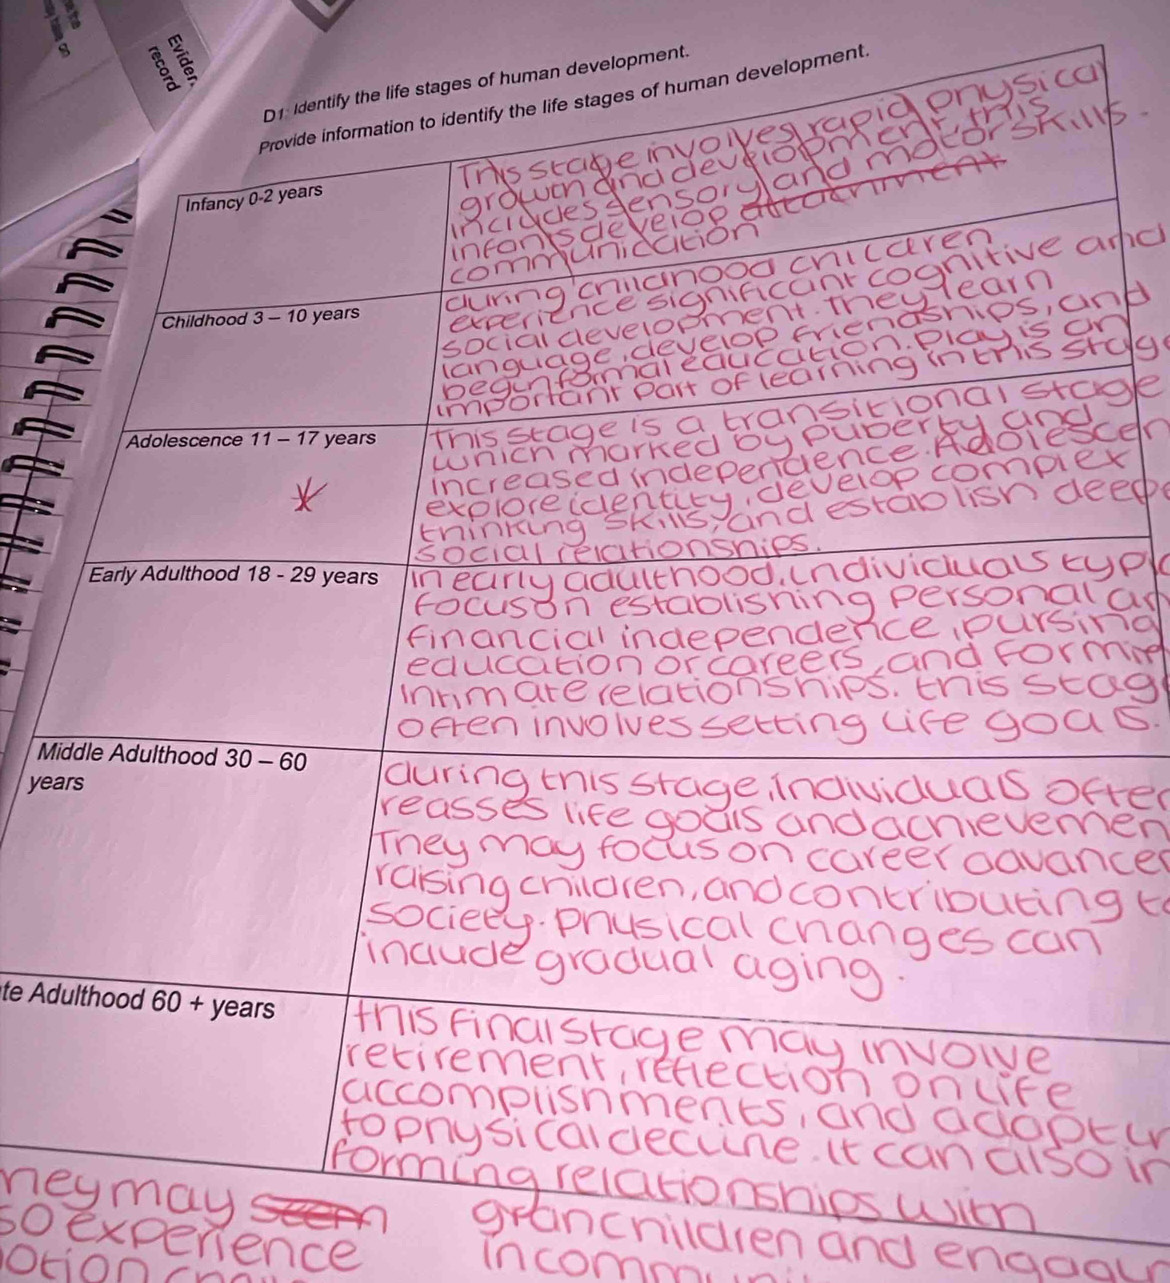 Eviden
record
D1: Identify the life stages of human development.
Provide information to identify the life stages of human development.
Infancy 0-2 years
This stage involves rapid physical
growth and development this
includes sensory and motor skills.
infants develop attachment
communication
Childhood 3 – 10 years
during childhood children
experience significant cognitive and
social development. They learn
language, develop friendships, and
begin formal education. Play is an
important part of learning in this stage
Adolescence 11 – 17 years
This stage is a transitional stage
which marked by puberty and
increased independence. Adolescen
explore identity, develop complex
thinking skills, and establish deep
social relationships.
Early Adulthood 18 - 29 years
in early adulthood, individuals typic
focus on establishing personal an
financial independence, pursing
education or careers, and formin
intimate relationships. this stag
often involves setting life goals.
Middle Adulthood 30 – 60
years
during this stage, individuals often
reasses life goals and achievemen
They may focus on career advances
raising children, and contributing to
society. physical changes can
include gradual aging.
te Adulthood 60 + years
this final stage may involve
retirement, reflection on life
accomplishments, and adaptin
to physical decline. it can also in
forming relationships with
grancnildren and engagin
hey may seem
so experience
otion